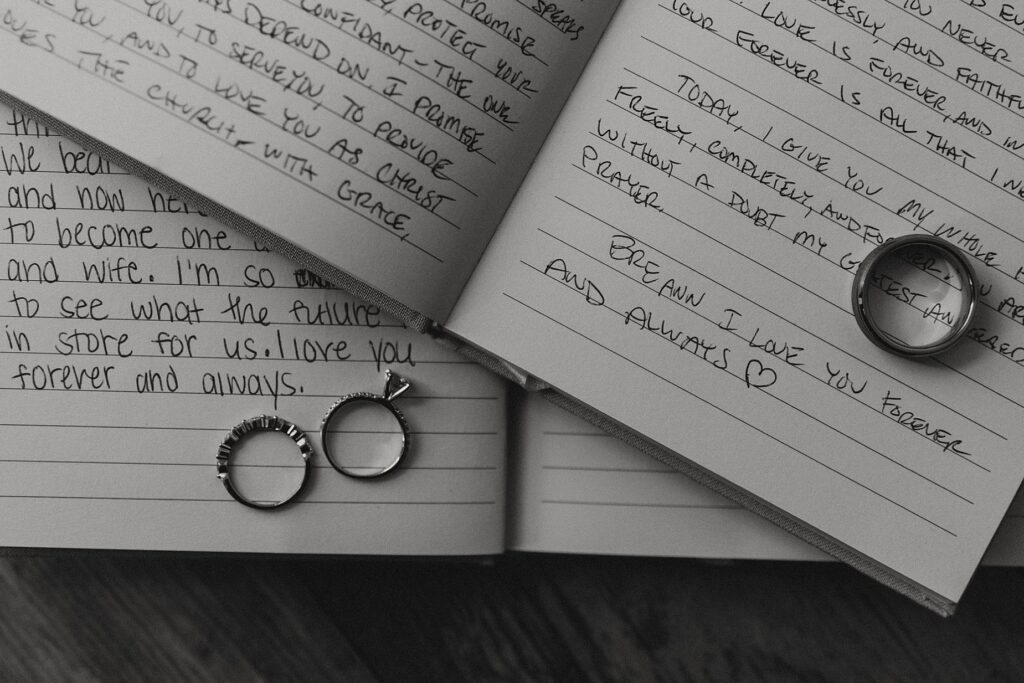 SPEAKS
PROTECT YOUR
PROMISE
CONFIDANT - THE ONE
DEPEND ON. I PROMISE
YOU, TO SERVE YOU, TO PROVIDE
YOU, AND TO LOVE YOU AS CHRIST
THE CHURCH - WITH GRACE,
YOU NEVER
AND FAITHFU
LOVE IS FOREVER, AND IN
YOUR FOREVER IS ALL THAT I NE
TODAY, I GIVE YOU MY WHOLE
FREELY, COMPLETELY, AND FOREVER. YOU ARE
WITHOUT A DOUBT MY
PRAYER.
BREANN I LOVE YOU FOREVER
AND ALWAYS ♡
We
and now
to become one
and wife. I'm so
to see what the future
in store for us. I love you
forever and always.